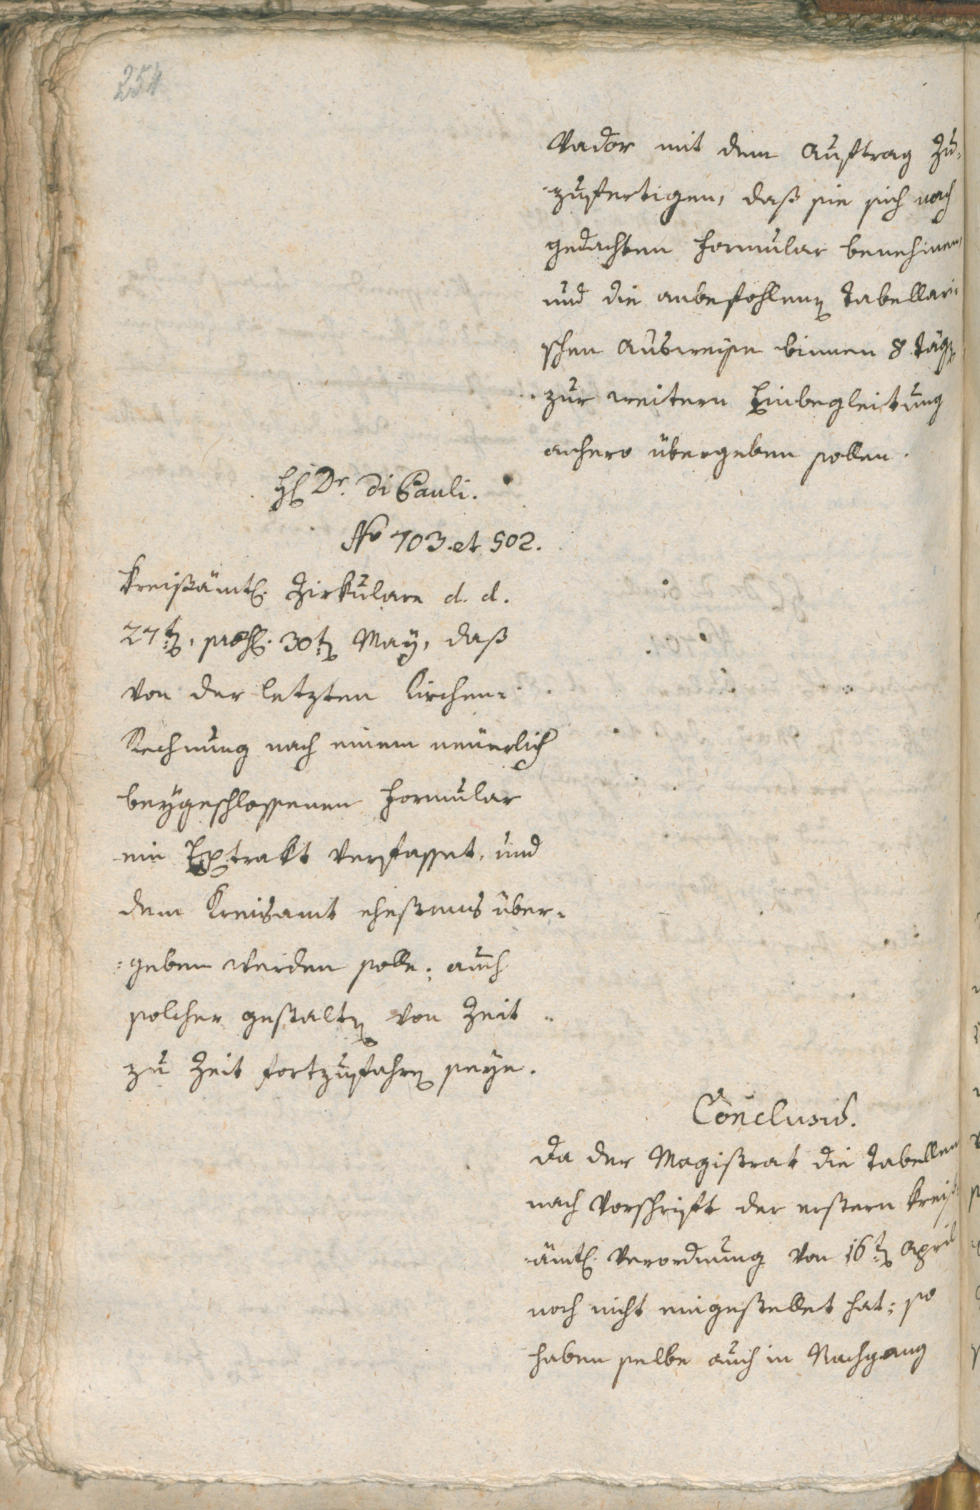 254
Vador mit dem Auftrag zu-
zufertigen, daß sie sich nach
gedachten Formular benehmen,
und die anbefohlenen Tabellari
schen Ausweise binnen 8 Täg
zur weitern Einbegleitung
anhero übergeben sollen.
H Dr. Di Pauli.
No 703. et 502.
Kreisämtl. Zirkulare d. d.
27t, 30t May, daß
von der letzten Kirchen-
Rechnung nach einem neuerlich
beygeschlossenen Formular
ein Extrakt verfasset, und
dem Kreisamt ehestens über-
geben werden solle; auch
solcher gestalten von Zeit
zu Zeit fortzufahren seye.
Conclusū.
Da der Magistrat die Tabellen
nach Vorschrift der erstern Kreis
ämtl. Verordnung von 16t April
noch nicht eingestellet hat; so
haben selbe auch in Nachgang